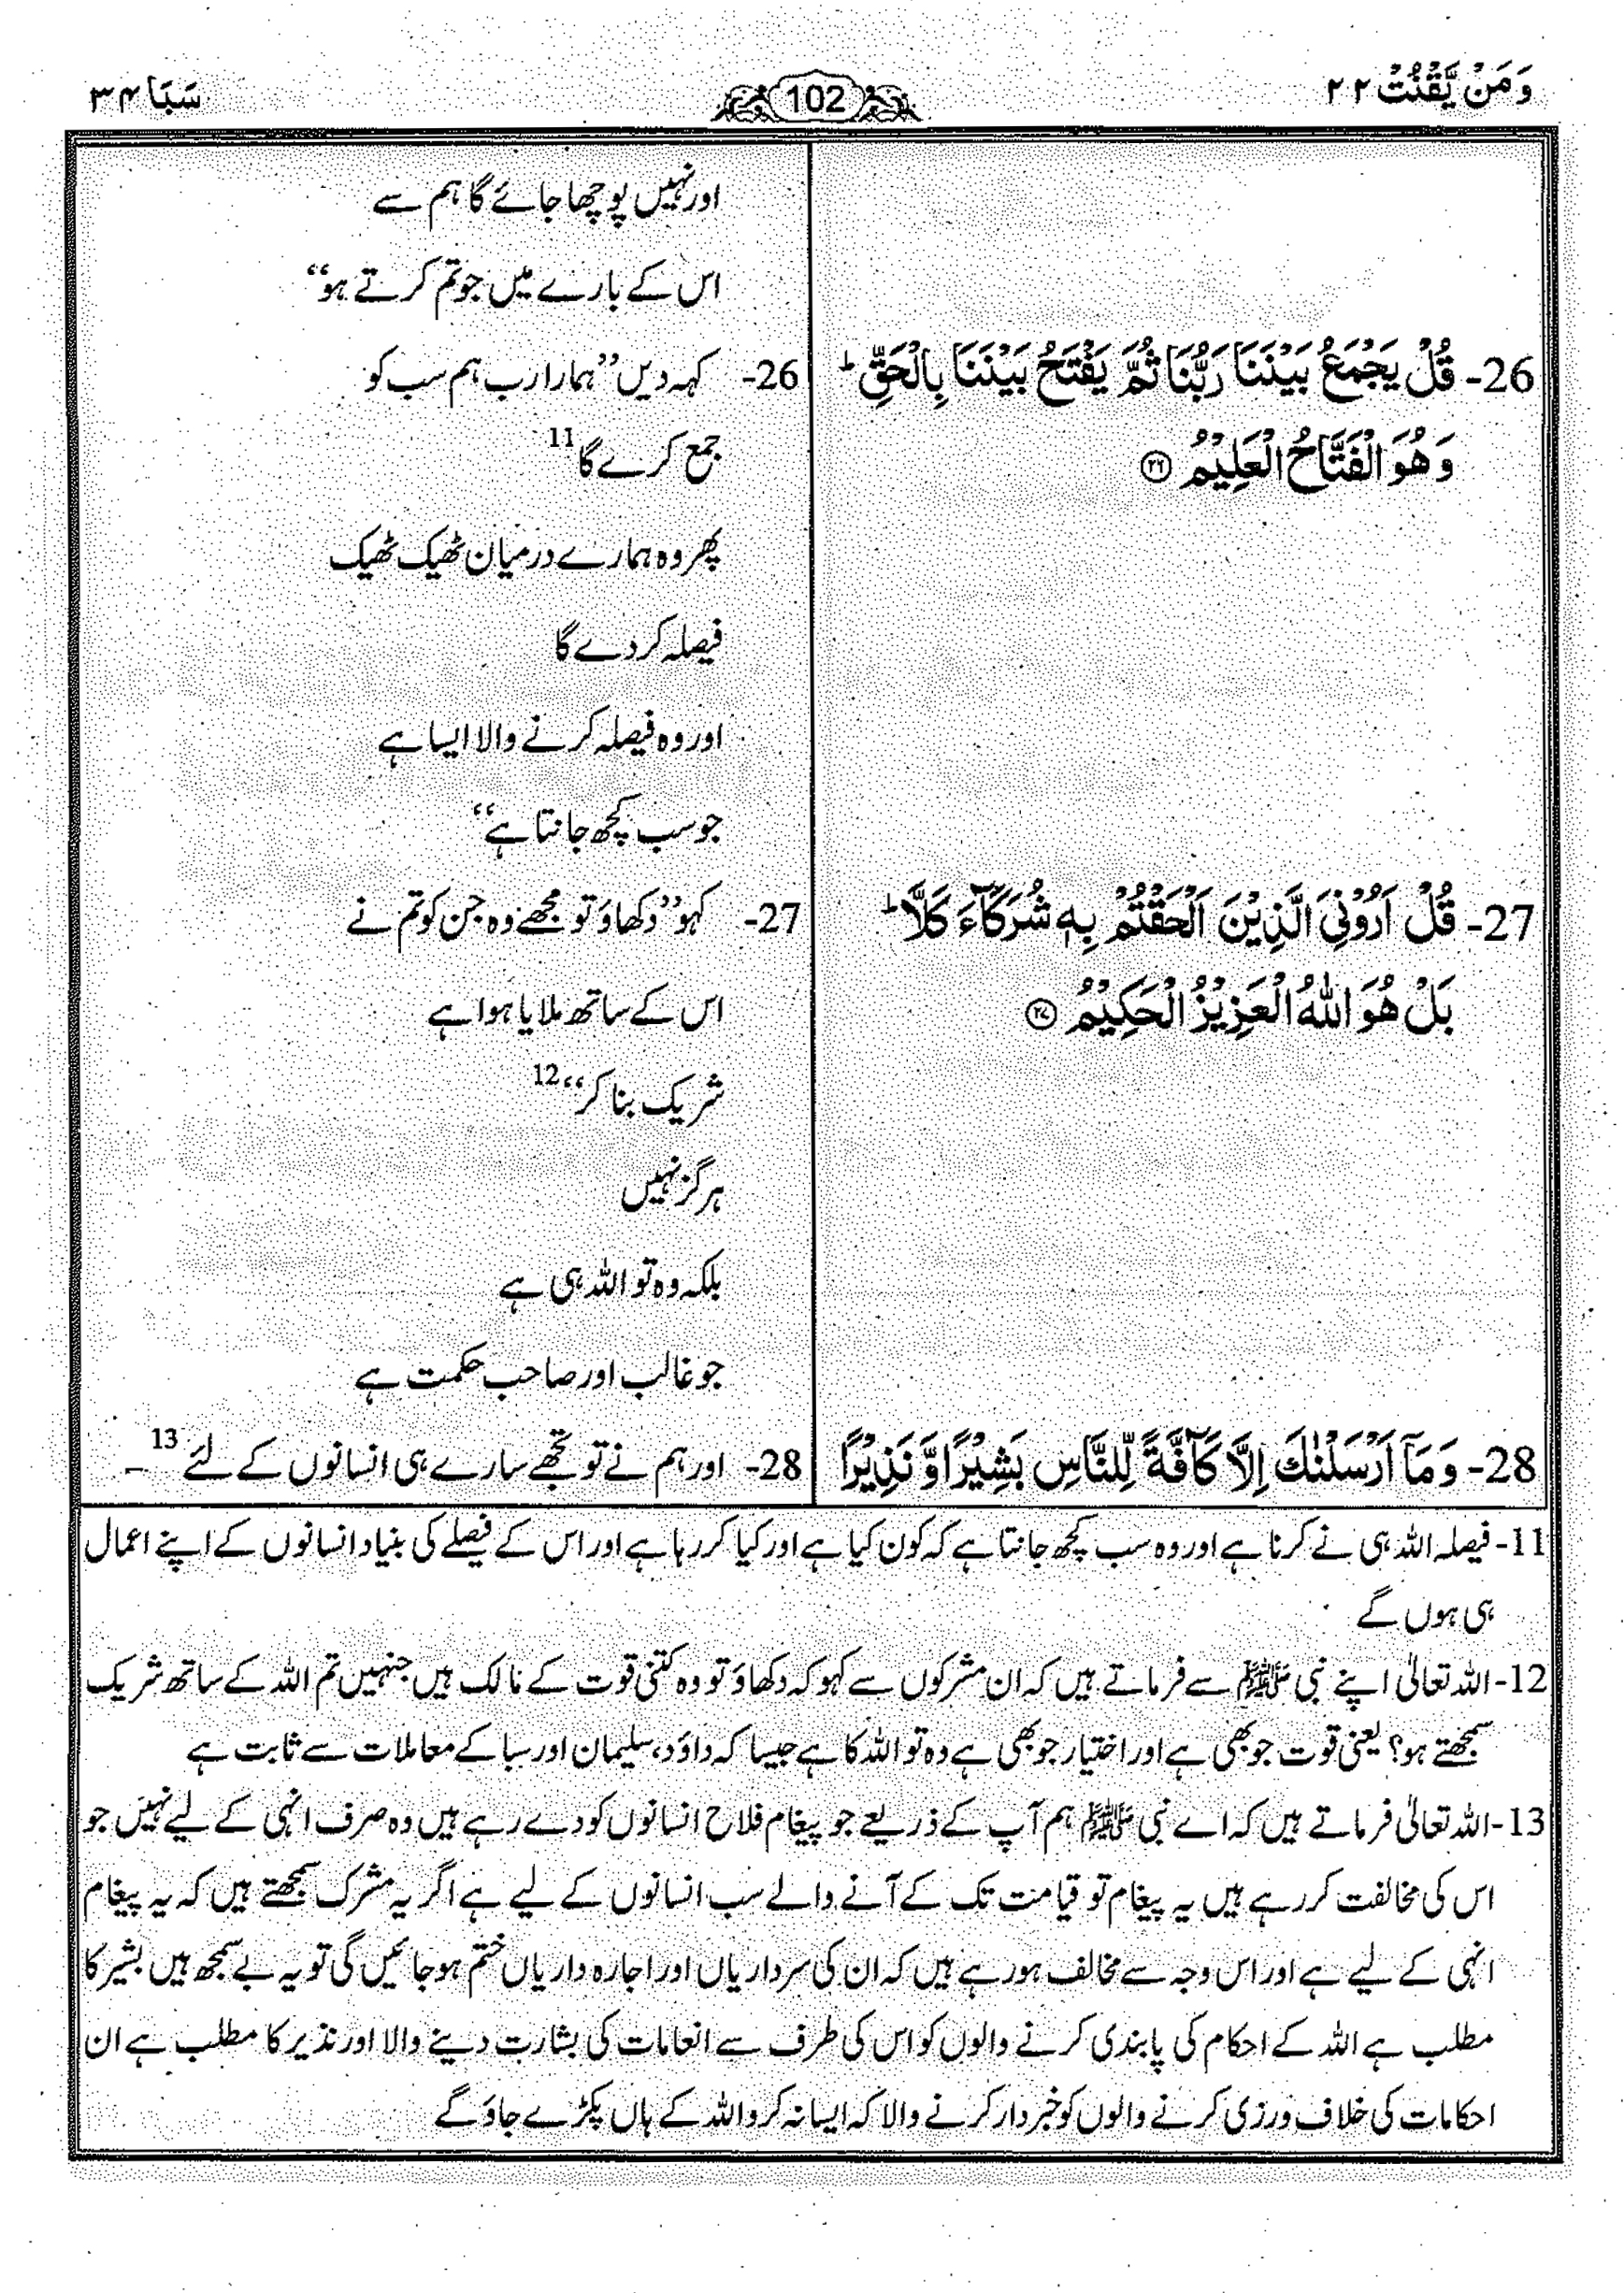 وَمَنْ يَّقْنُتْ ۲۲
102
سَبَا ۳۴
اور نہیں پوچھا جائے گا ہم سے
اس کے بارے میں جو تم کرتے ہو“
26- قُلْ يَجْمَعُ بَيْنَنَا رَبُّنَا ثُمَّ يَفْتَحُ بَيْنَنَا بِالْحَقِّ ؕ
وَهُوَ الْفَتَّاحُ الْعَلِيْمُ ﴿۲۶﴾
26- کہہ دیں ”ہمارا رب ہم سب کو
جمع کرے گا 11
پھر وہ ہمارے درمیان ٹھیک ٹھیک
فیصلہ کر دے گا
اور وہ فیصلہ کرنے والا ایسا ہے
جو سب کچھ جانتا ہے“
27- قُلْ اَرُوْنِیَ الَّذِيْنَ اَلْحَقْتُمْ بِهٖ شُرَكَآءَ كَلَّا ؕ
بَلْ هُوَ اللّٰهُ الْعَزِيْزُ الْحَكِيْمُ ﴿۲۷﴾
27- کہو ”دکھاؤ تو مجھے وہ جن کو تم نے
اس کے ساتھ ملایا ہوا ہے
شریک بنا کر“ 12
ہرگز نہیں
بلکہ وہ تو اللہ ہی ہے
جو غالب اور صاحب حکمت ہے
28- وَمَآ اَرْسَلْنٰكَ اِلَّا كَآفَّةً لِّلنَّاسِ بَشِيْرًا وَّ نَذِيْرًا
28- اور ہم نے تو تجھے سارے ہی انسانوں کے لئے 13 ۔
11- فیصلہ اللہ ہی نے کرنا ہے اور وہ سب کچھ جانتا ہے کہ کون کیا ہے اور کیا کر رہا ہے اور اس کے فیصلے کی بنیاد انسانوں کے اپنے اعمال
ہی ہوں گے
12- اللہ تعالیٰ اپنے نبی ﷺ سے فرماتے ہیں کہ ان مشرکوں سے کہو کہ دکھاؤ تو وہ کتنی قوت کے مالک ہیں جنہیں تم اللہ کے ساتھ شریک
سمجھتے ہو؟ یعنی قوت جو بھی ہے اور اختیار جو بھی ہے وہ تو اللہ کا ہے جیسا کہ داؤد، سلیمان اور سبا کے معاملات سے ثابت ہے
13- اللہ تعالیٰ فرماتے ہیں کہ اے نبی ﷺ ہم آپ کے ذریعے جو پیغام فلاح انسانوں کو دے رہے ہیں وہ صرف انہی کے لیے نہیں جو
اس کی مخالفت کر رہے ہیں یہ پیغام تو قیامت تک کے آنے والے سب انسانوں کے لیے ہے اگر یہ مشرک سمجھتے ہیں کہ یہ پیغام
انہی کے لیے ہے اور اس وجہ سے مخالف ہو رہے ہیں کہ ان کی سرداریاں اور اجارہ داریاں ختم ہو جائیں گی تو یہ بے سمجھ ہیں بشیر کا
مطلب ہے اللہ کے احکام کی پابندی کرنے والوں کو اس کی طرف سے انعامات کی بشارت دینے والا اور نذیر کا مطلب ہے ان
احکامات کی خلاف ورزی کرنے والوں کو خبردار کرنے والا کہ ایسا نہ کرو اللہ کے ہاں پکڑے جاؤ گے